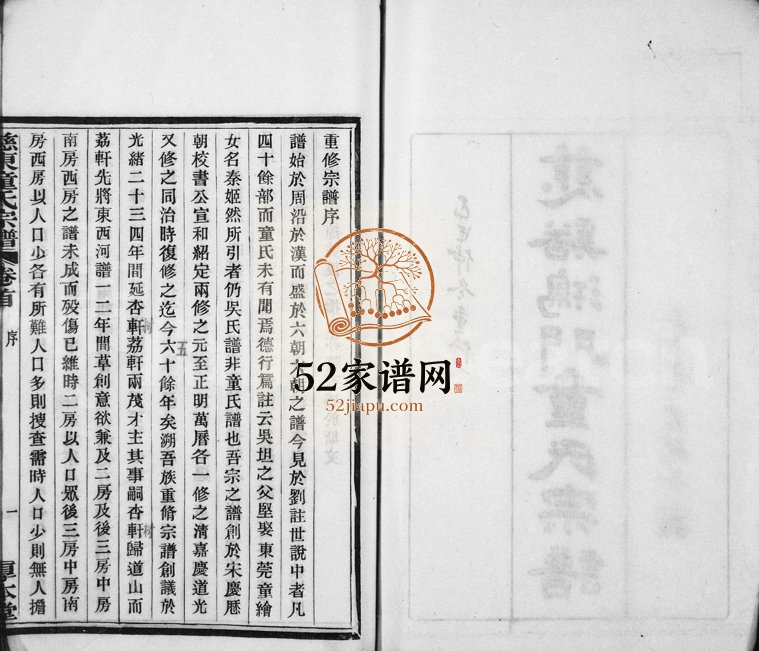 重修宗譜序
譜始於周沿於漢而盛於六朝六朝之譜今見於劉註世說中者凡
四十餘部而童氏未有聞焉德行篇註云吳坦之父堅娶東莞童繪
女名秦姬然所引者仍吳氏譜非童氏譜也吾宗之譜創於宋慶曆
朝校書公宣和紹定兩修之元至正明萬曆各一修之清嘉慶道光
又修之同治時復修之迄今六十餘年矣溯吾族重脩宗譜創議於
五
光緒二十三四年間延杏軒荔軒兩茂才主其事嗣杏軒歸道山而
村
村
荔軒先將東西河譜一二年間草創意欲兼及二房及後三房中房
南房西房之譜未成而歿傷已維時二房以人口眾後三房中房南
房西房以人口少各有所難人口多則搜查需時人口少則無人擔
慈東童氏宗譜 卷首
序
一
厚本堂
慈谿鴻門童氏宗譜
52家谱网
52jiapu.com